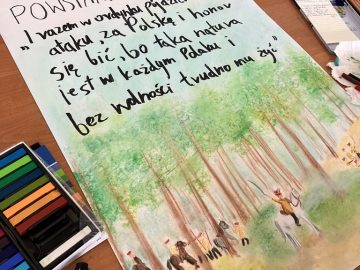 POWSTA
„I razem w ordynku
ataku za Polskę i honor
się bić, bo taka natura
jest w każdym Polaku i
bez wolności trudno mu żyć”